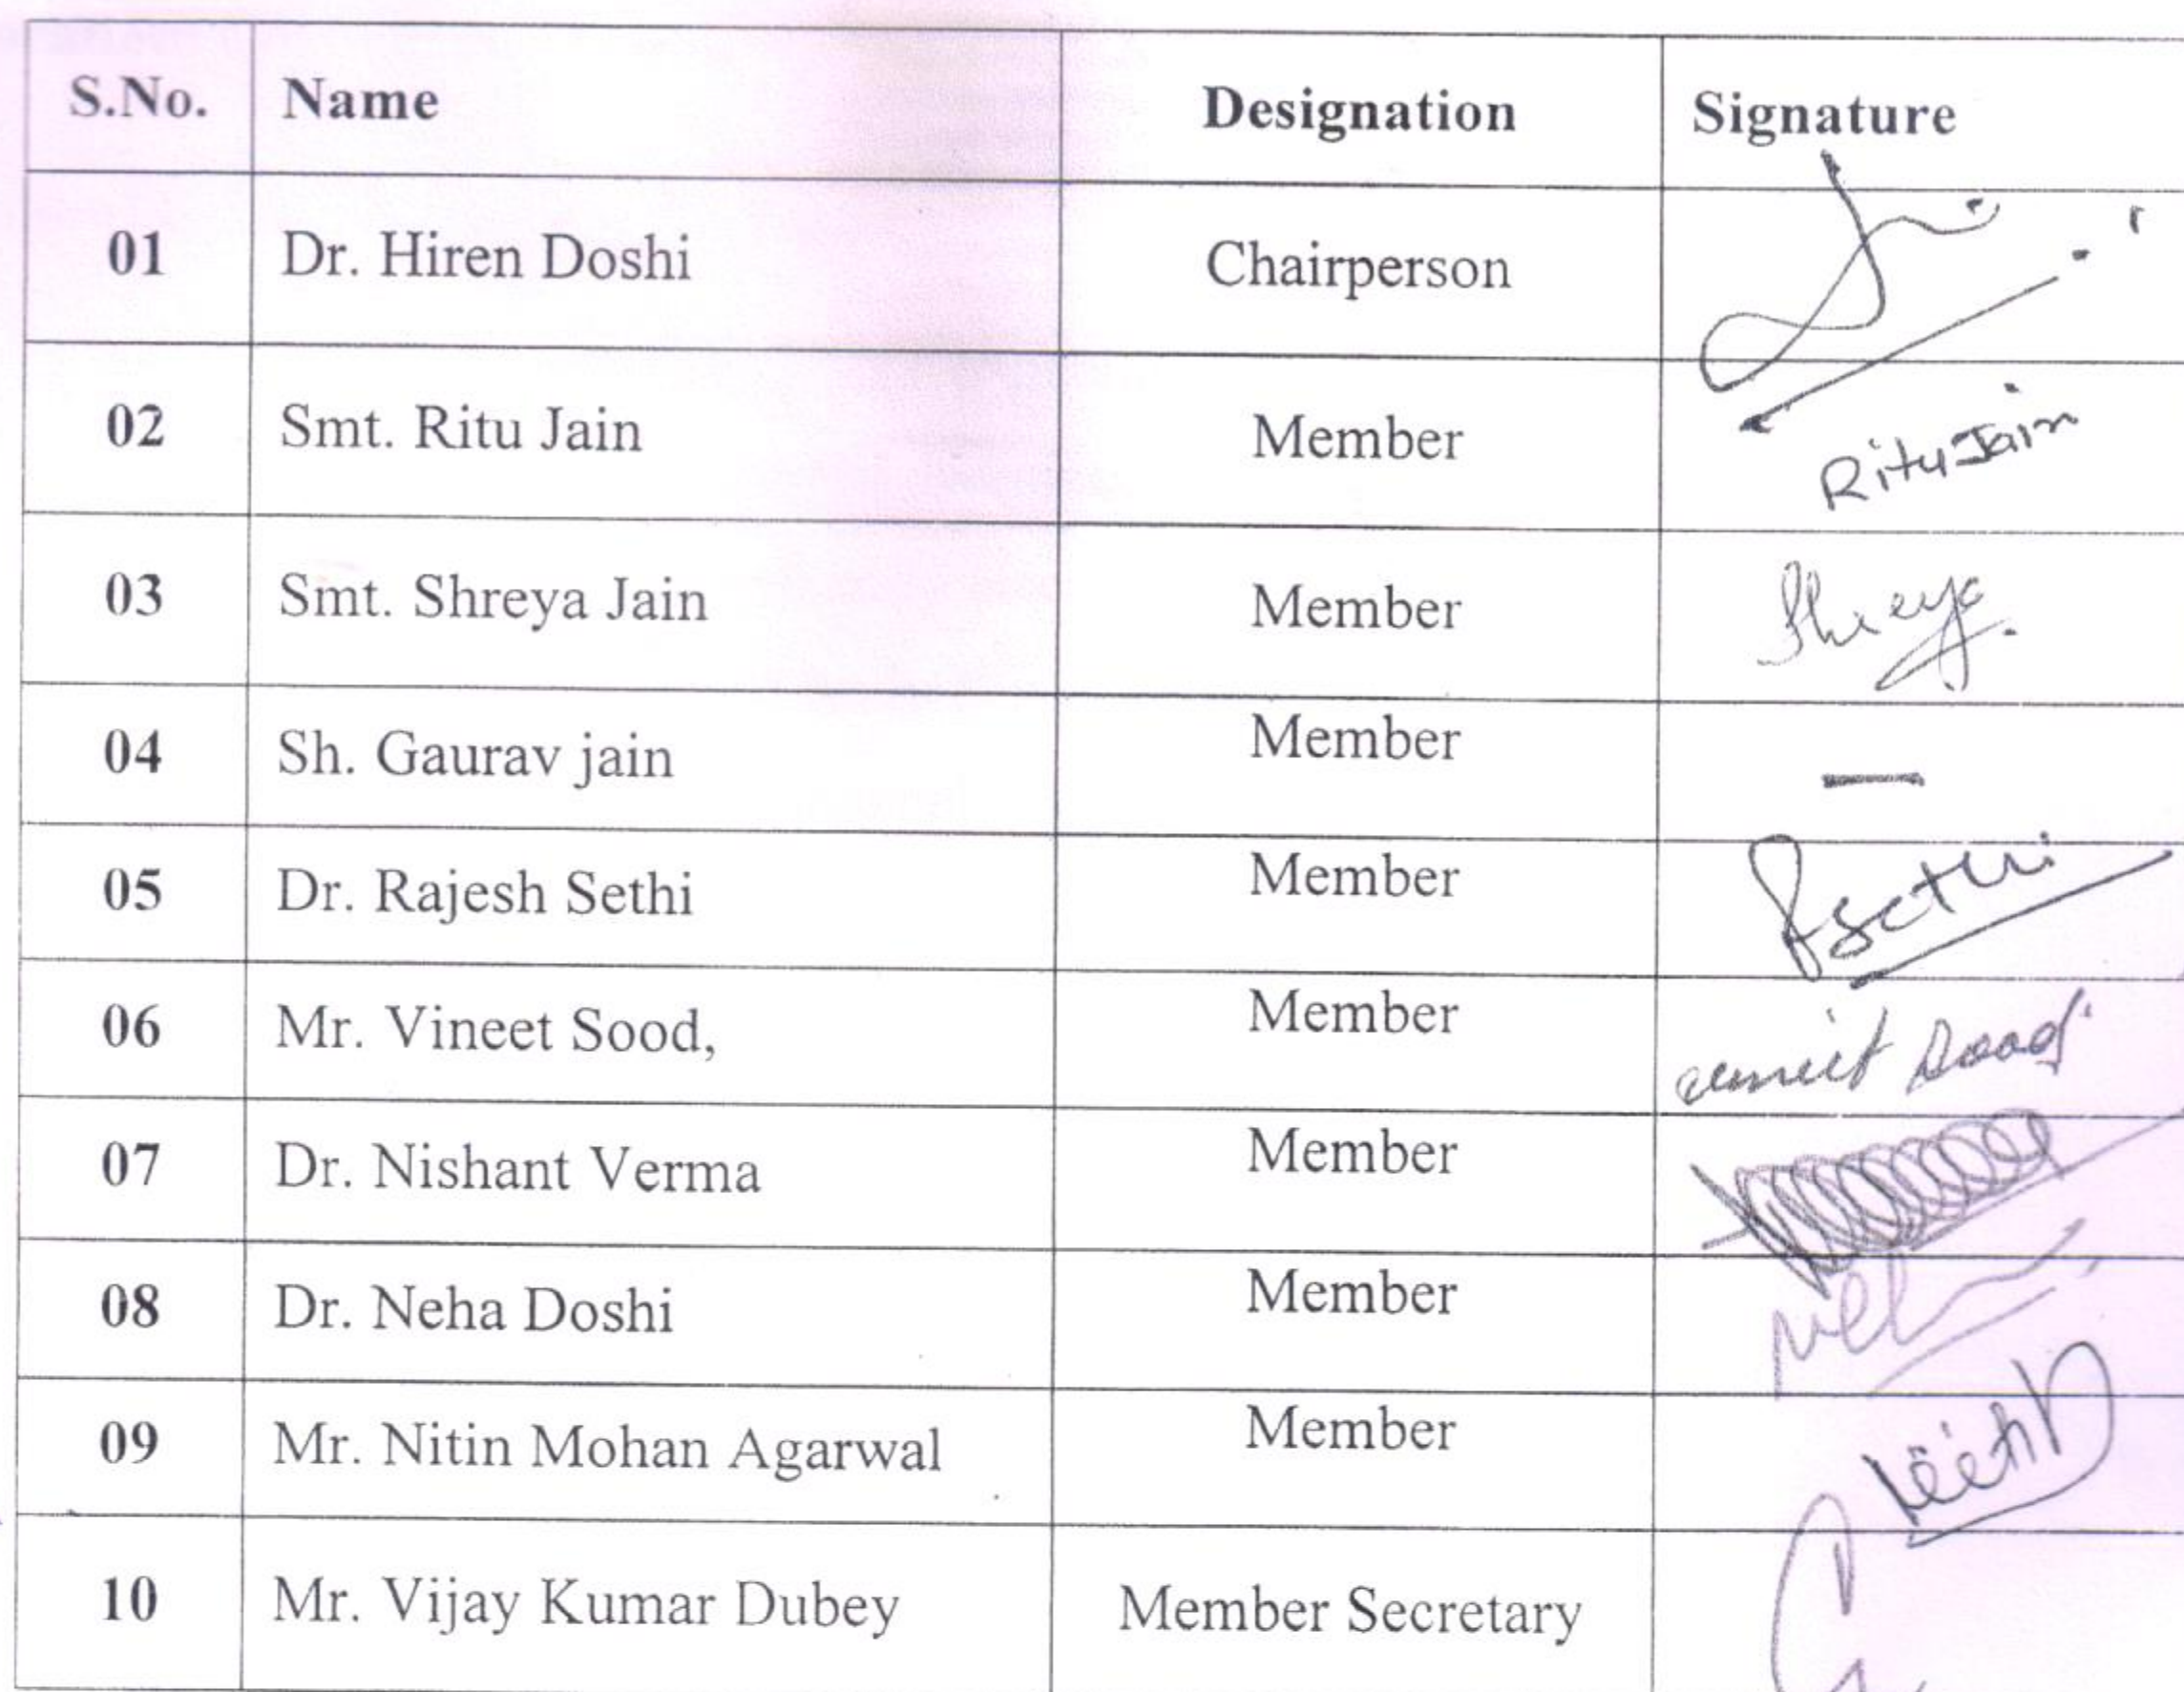 S.No. Name Designation Signature
01 Dr. Hiren Doshi Chairperson
02 Smt. Ritu Jain Member Ritu Jain
03 Smt. Shreya Jain Member Shreya
04 Sh. Gaurav jain Member —
05 Dr. Rajesh Sethi Member RSethi
06 Mr. Vineet Sood, Member Vineet Sood
07 Dr. Nishant Verma Member
08 Dr. Neha Doshi Member
09 Mr. Nitin Mohan Agarwal Member
10 Mr. Vijay Kumar Dubey Member Secretary